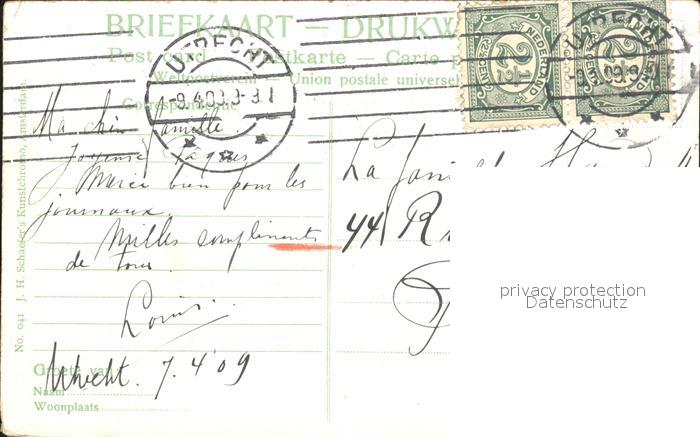 BRIEFKAART — DRUKW
Post card — Postkarte — Carte p
Weltpostverein — Union postale universel
Correspondentie
UTRECHT
9.4.09
Ma chère famille.
Joyeuse Pâques
Merci bien pour les
journaux.
Milles compliments
de tous.
Louis.
Utrecht. 7.4'09
Groete van
Naam
Woonplaats
No. 041 J. H. Schaefer's Kunstchromo, Amsterdam.
NEDERLAND
2½
CENT
UTRECHT
NEDERLAND
2½
CENT
La
44 R
privacy protection
Datenschutz